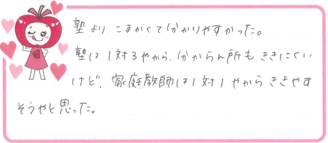 塾よりこまかくて分かりやすかった。
塾は1対3やから、分からん所もききにくい
けど、家庭教師は1対1やからききやす
そうやと思った。